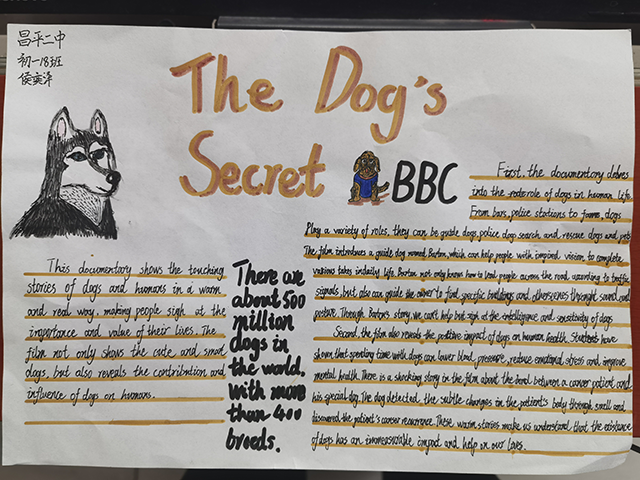 昌平二中
初一18班
The Dog's
Secret
BBC
This documentary shows the touching
stories of dogs and humans in a warm
and real way, making people sigh at the
importance and value of their lives. The
film not only shows the cute and smart
dogs, but also reveals the contribution and
influence of dogs on humans.
There are
about 500
million
dogs in
the world.
With more
than 400
breeds.
First, the documentary delves
into the role of dogs in human life
From bars, police stations to farms, dogs
Play a variety of roles, they can be guide dogs, police dogs, search and rescue dogs and pets
The film introduces a guide dog named Barton, which can help people with impired vision to complete
various takes in daily life. Barton not only knows how to lead people across the road according to traffic
signals, but also can guide the owner to find specific buildings and other scenes through sound and
posture. Through Barton's story, we can't help but sigh at the intelligence and sensitivity of dogs
Second, the film also reveals the positive impact of dogs on human health. Students have
shown that spending time with dogs can lower blood pressure, reduce emotional stress and improve
mental health. There is a shocking story in the film about the bond between a cancer patient and
his special dog. The dog detected the subtle changes in the patient's body through smell and
discovered the patient's cancer recurrence. These warm stories make us understand that the existence
of dogs has an immeasurable impact and help in our lives.